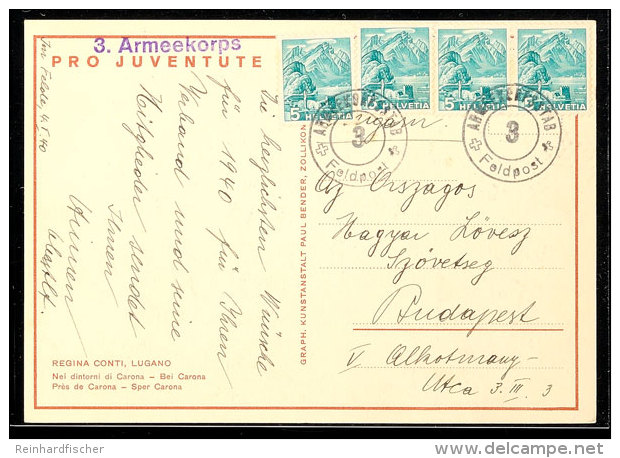 3. Armeekorps
PRO JUVENTUTE
Im Felde, 4.5.40
Die herzlichsten Wünsche
für 1940 für Ihren
Verband und seine
Mitglieder sendet
Ihnen
5 HELVETIA
5 HELVETIA
5 HELVETIA
5 HELVETIA
ARMEEKORPSSTAB
3
Feldpost
3
Feldpost
Ungarn.
Az Országos
Magyar Lövész
Szövetseg
Budapest
V Alkotmany-
Utca 3. III. 3
GRAPH. KUNSTANSTALT PAUL BENDER, ZOLLIKON
REGINA CONTI, LUGANO
Nei dintorni di Carona – Bei Carona
Près de Carona – Sper Carona
Reinhardfischer
delcampe.net